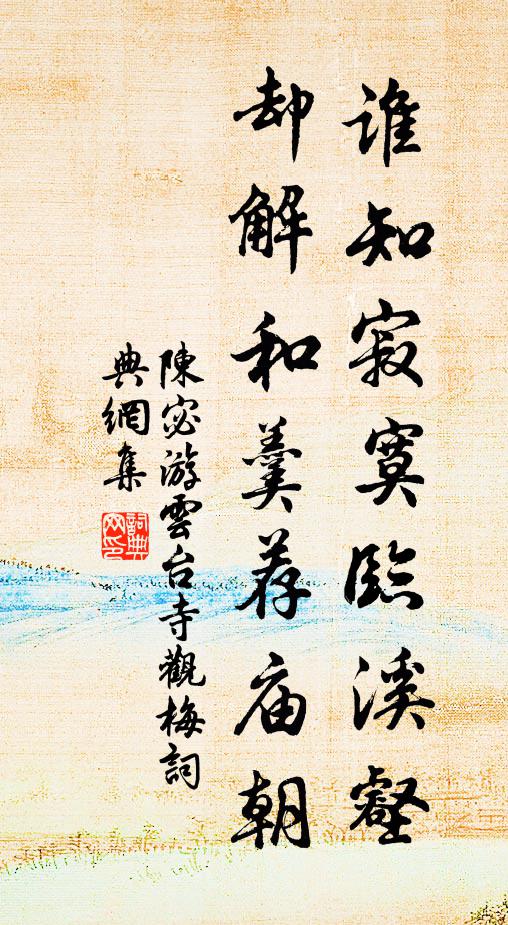 誰知寂寞臨溪壑
却解和羹荐庙朝
陳宓游雲台寺觀梅詞
典網集
詞典
网印